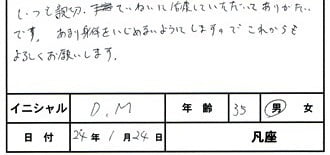 いつも親切、ていねいに治療していただいてありがたい
です。あまり身体をいじめないようにしますので これからも
よろしくお願いします。
イニシャル D.M 年齢 35 男 女
日付 24年 1月 24日 凡座